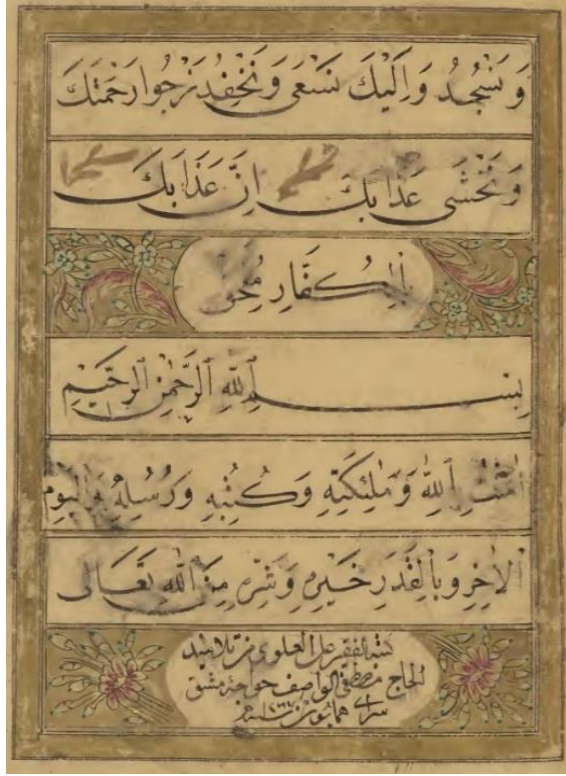 وَنَسْجُدُ وَاِلَيْكَ نَسْعَى وَنَحْفِدُ نَرْجُوا رَحْمَتَكَ
وَنَخْشَى عَذَابَكَ اِنَّ عَذَابَكَ
بِالْكُفَّارِ مُلْحِقٌ
بِسْمِ ٱللهِ ٱلرَّحْمٰنِ ٱلرَّحِيْمِ
اٰمَنْتُ بِٱللهِ وَمَلٰئِكَتِهِ وَكُتُبِهِ وَرُسُلِهِ وَالْيَوْمِ
الْاٰخِرِ وَبِالْقَدَرِ خَيْرِهِ وَشَرِّهِ مِنَ ٱللهِ تَعَالٰى
كتبه الفقير على العلوى من تلاميذ
الحاج مصطفى الواصف خواجهٔ مشق
سراى همايون